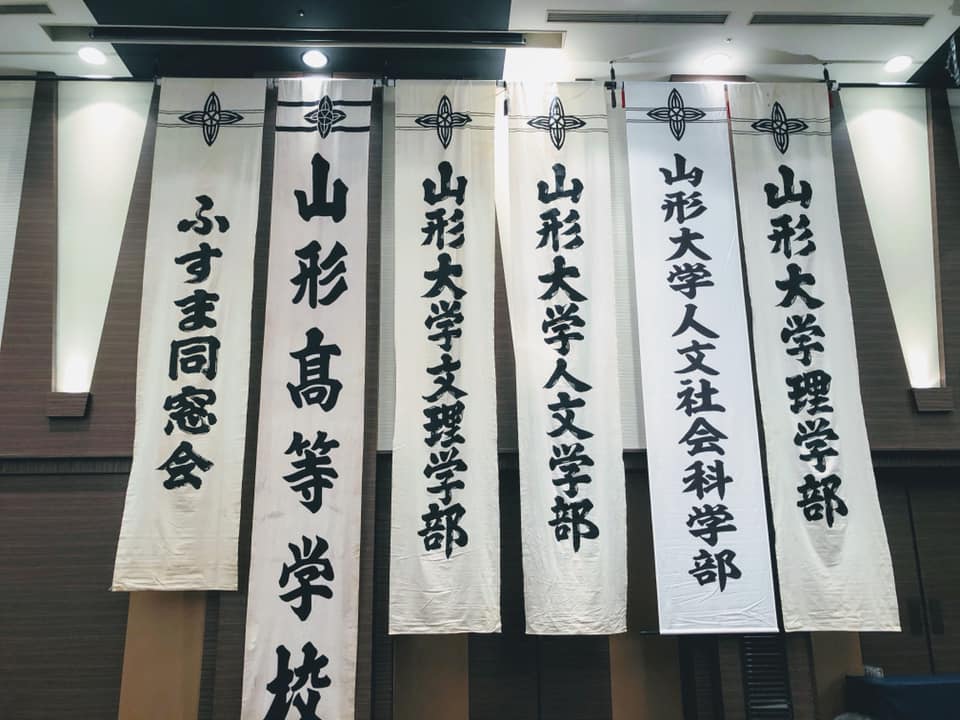 ふすま同窓会
山形髙等学校
山形大学文理学部
山形大学人文学部
山形大学人文社会科学部
山形大学理学部